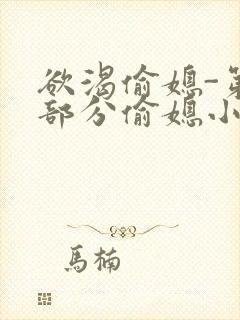 欲渴偷媳-第
部分偷媳小
馬楠